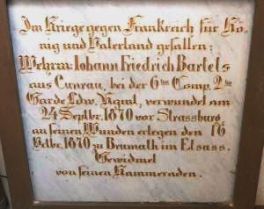 Im Kriege gegen Frankreich für Kö-
nig und Vaterland gefallen:
Wehrm: Johann Friedrich Bartels
aus Cunrau, bei der 6ten Comp. 2ten
Garde Ldw. Rgmt, verwundet am
24 Septbr. 1870 vor Strassburg
an seinen Wunden erlegen den 16
Octbr. 1870 zu Brumath im Elsass.
Gewidmet
von seinen Kammeraden.